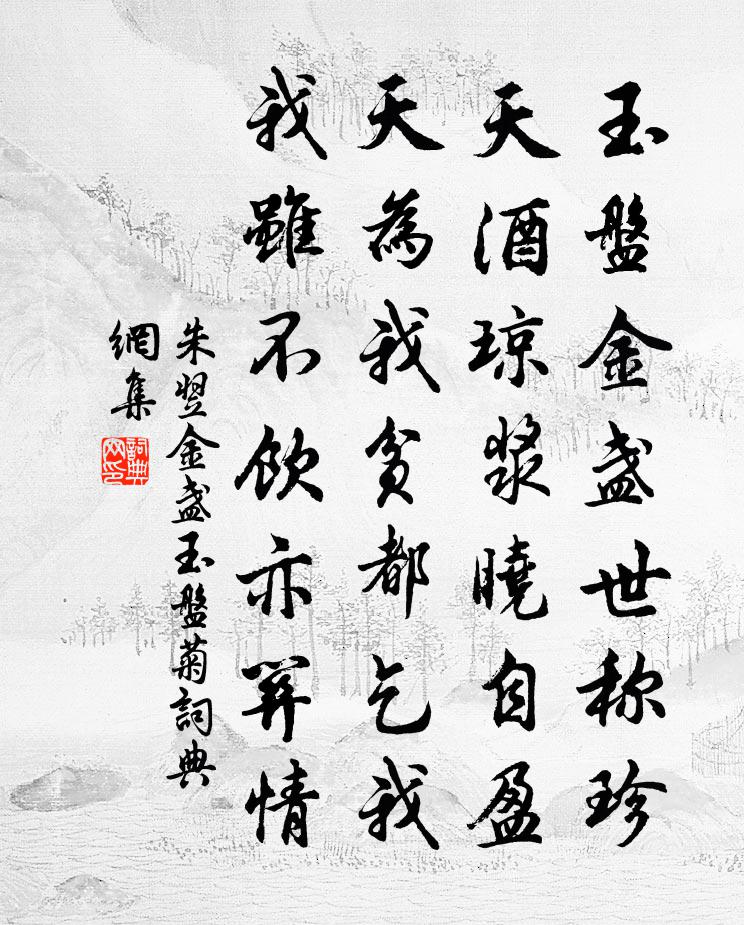 玉盤金盞世称珍
天酒琼漿曉自盈
天為我貧都乞我
我雖不飲亦羿情
朱翌金盞玉盤菊詞典
網集
詞典网印